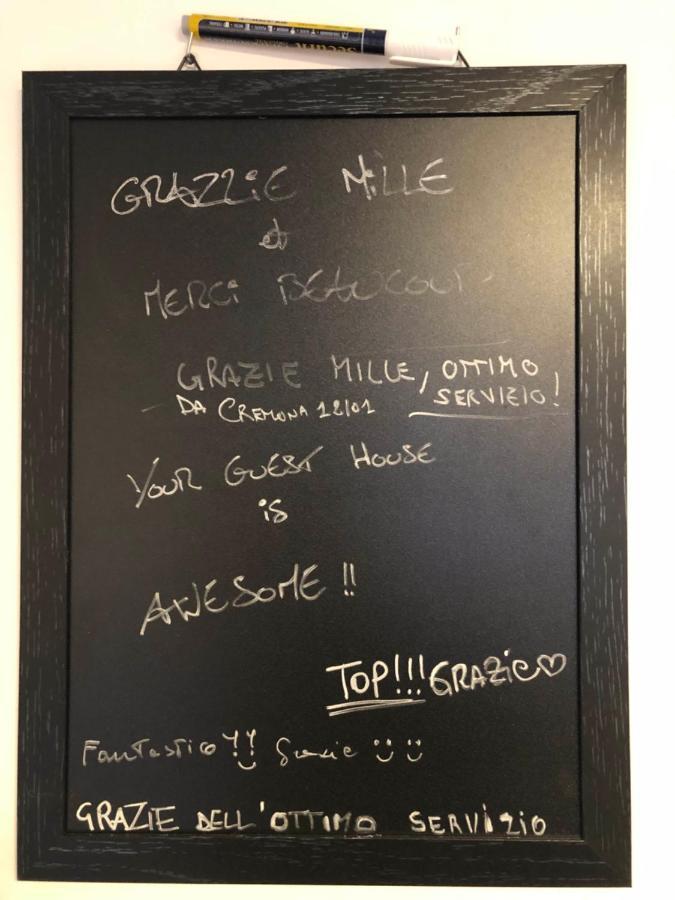 GRAZZIE MILLE
et
MERCI BEAUCOUP
GRAZIE MILLE, OTTIMO
SERVIZIO!
DA CREMONA 12/01
YOUR GUEST HOUSE
is
AWESOME !!
TOP!!! GRAZIE♡
Fantastico !! Grazie
GRAZIE DELL'OTTIMO SERVIZIO